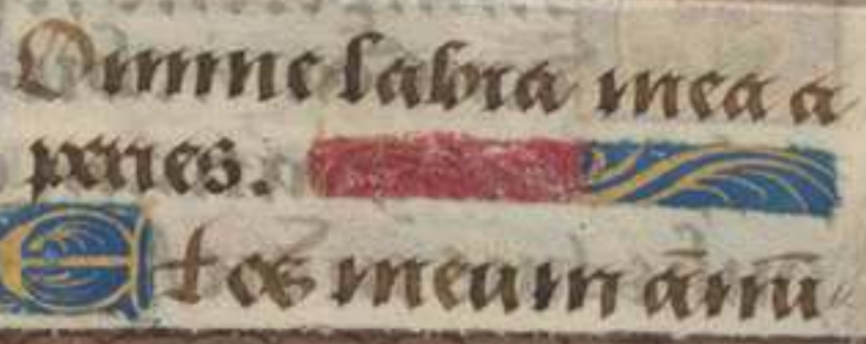 Domine labia mea a
peries.
Et os meum ānū